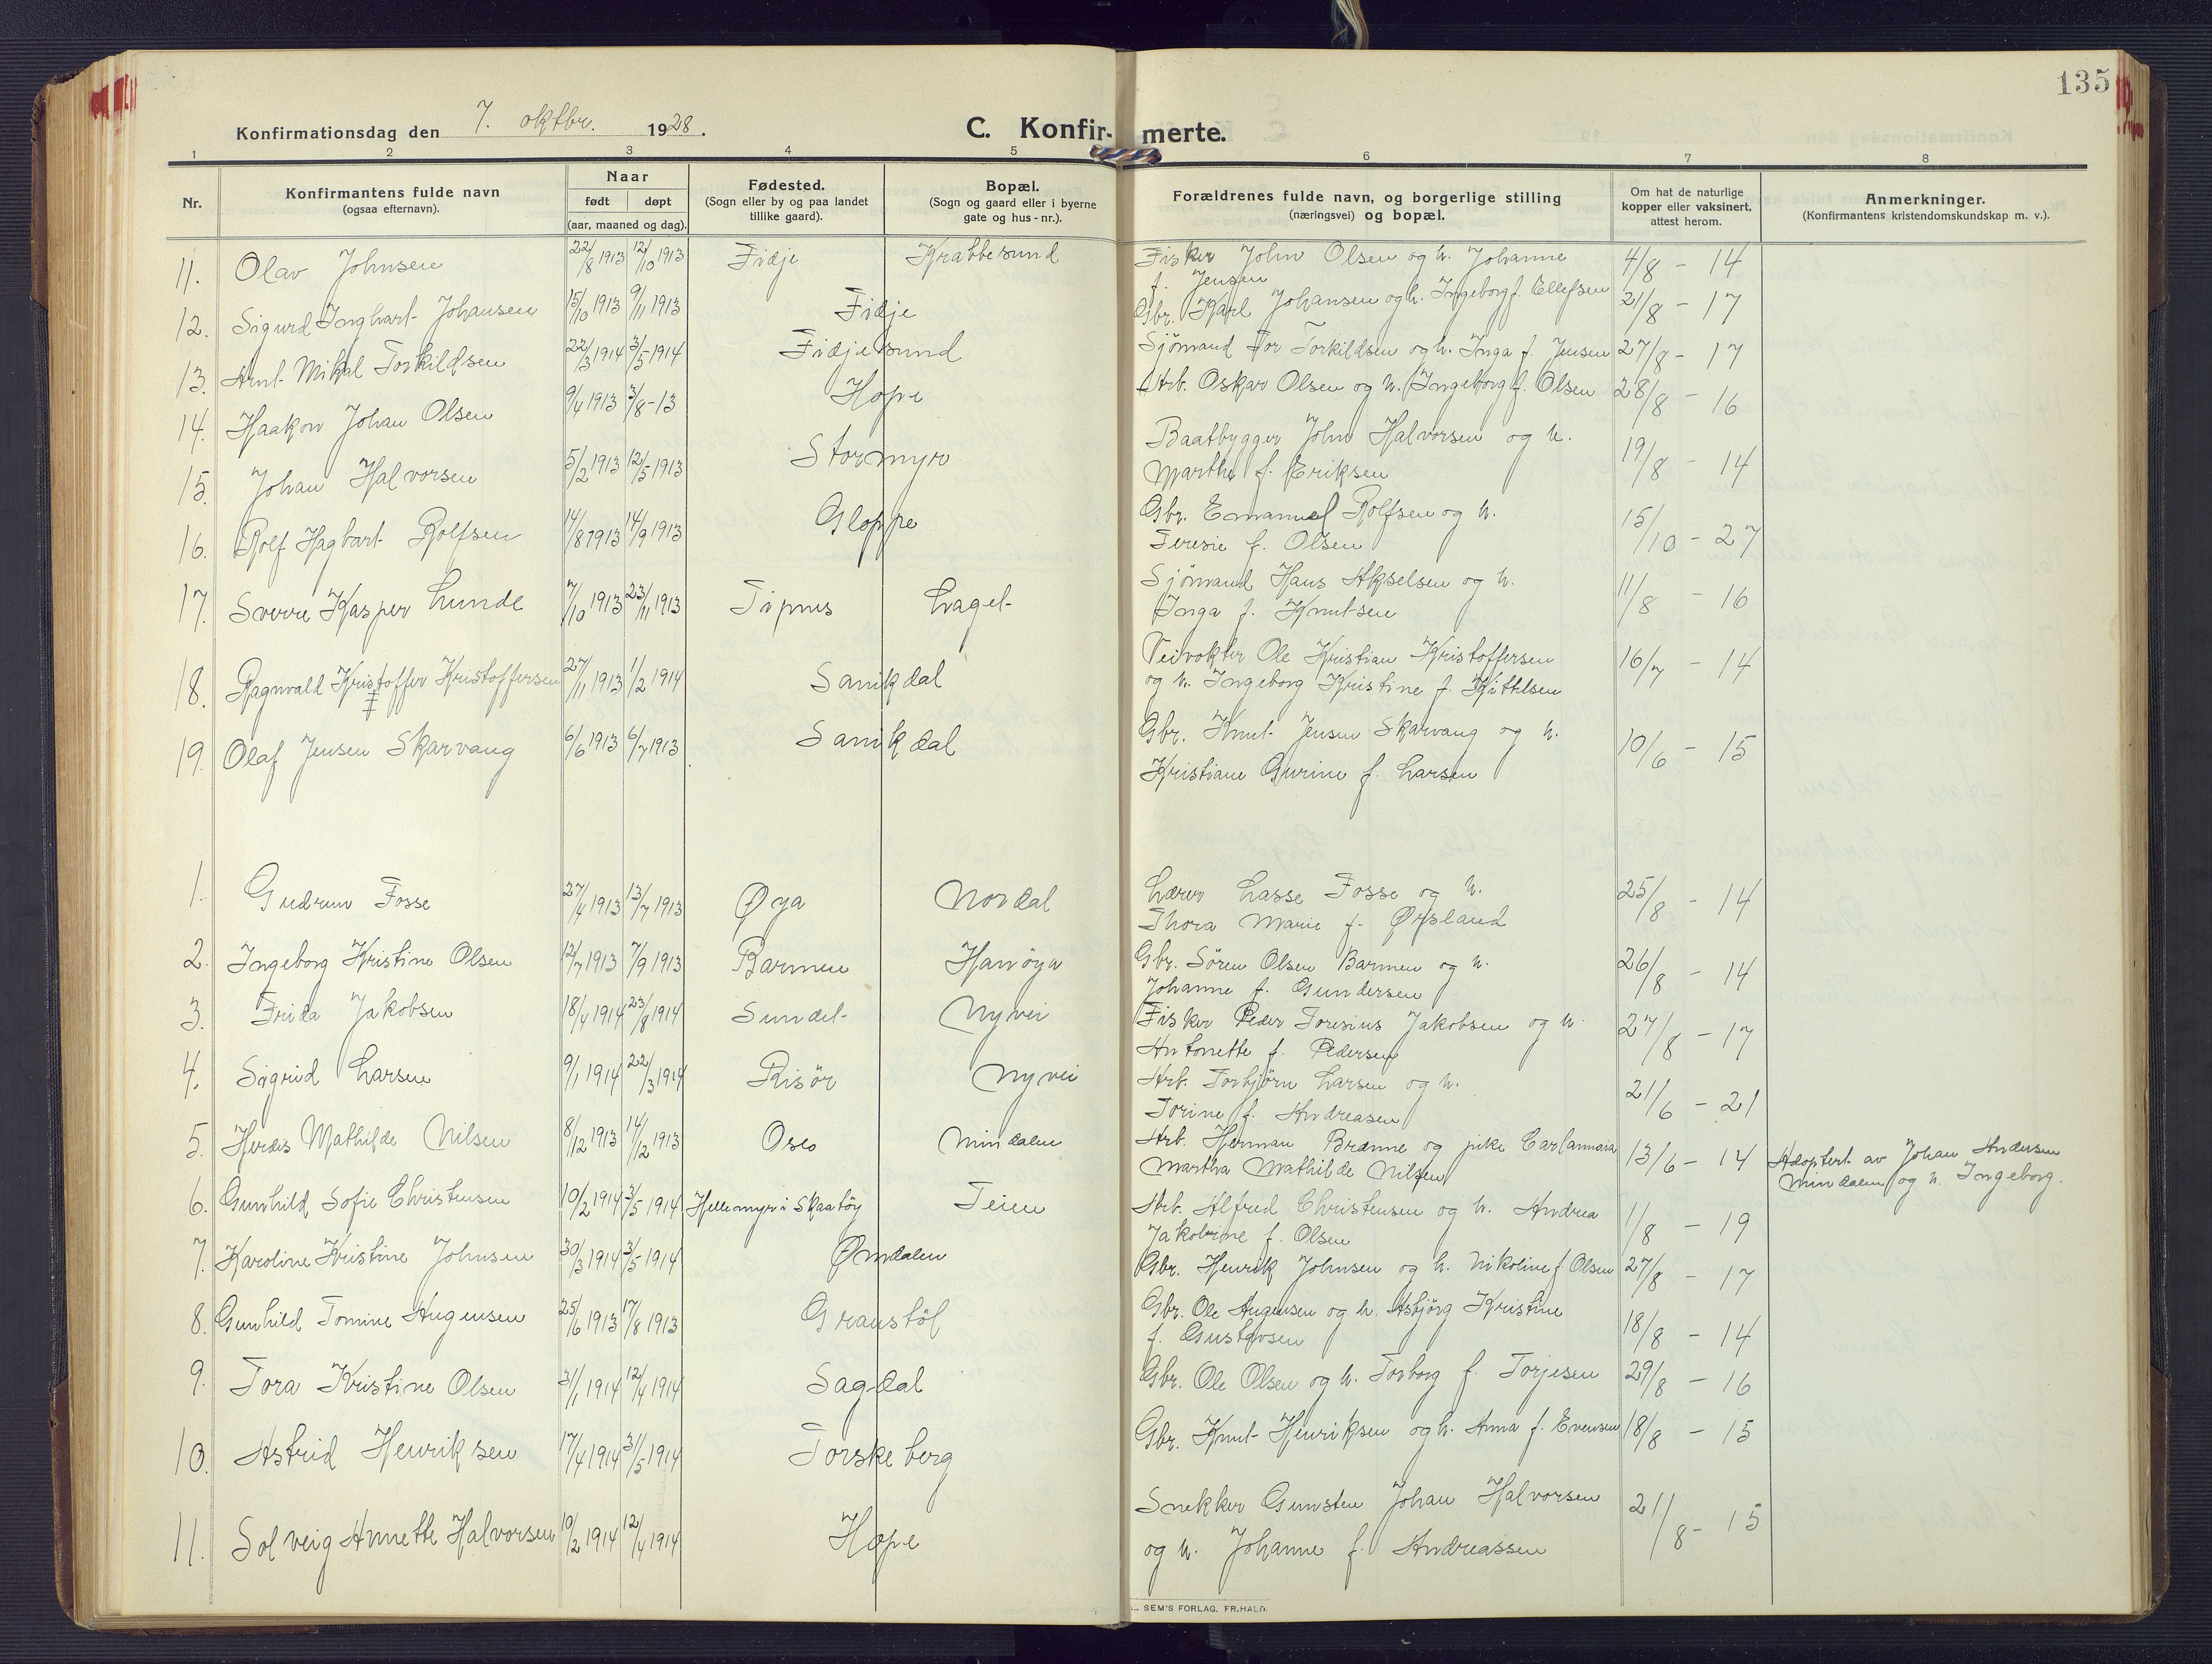 135
Konfirmationsdag den 7. oktbr. 1928.
C. Konfirmerte.
1 2 3 4 5 6 7 8
Nr.
Konfirmantens fulde navn
(ogsaa efternavn).
Naar
født døpt
(aar, maaned og dag).
Fødested.
(Sogn eller by og paa landet
tillike gaard).
Bopæl.
(Sogn og gaard eller i byerne
gate og hus-nr.).
Forældrenes fulde navn, og borgerlige stilling
(næringsvei) og bopæl.
Om hat de naturlige
kopper eller vaksinert,
attest herom.
Anmerkninger.
(Konfirmantens kristendomskundskap m. v.).
11. Olav Johnsen 22/8 1913 12/10 1913 Fidje Krabbesund Fisker John Olsen og h. Johanne 4/8 - 14
f. Jensen
12. Sigurd Inghart Johansen 15/10 1913 9/11 1913 Fidje Gbr. Karl Johansen og h. Ingeborg f. Ellefsen 21/8 - 17
13. Arnt Mikal Torkildsen 22/3 1914 3/5 1914 Fidjesund Sjömand Tor Torkildsen og h. Inga f. Jensen 27/8 - 17
14. Haakon Johan Olsen 9/4 1913 3/8 - 13 Hope Arb. Oskar Olsen og h. Ingeborg f. Olsen 28/8 - 16
15. Johan Halvorsen 5/2 1913 12/5 1913 Stormyr Baatbygger John Halvorsen og h. 19/8 - 14
Marthe f. Eriksen
16. Rolf Hagbart Rolfsen 14/8 1913 14/9 1913 Gloppe Gbr. Emanuel Rolfsen og h. 15/10 - 27
Teresie f. Olsen
17. Sverre Kasper Lunde 7/10 1913 23/11 1913 Tipnes Laget Sjömand Hans Akselsen og h. 11/8 - 16
Inga f. Knutsen
18. Ragnvald Kristoffer Kristoffersen 27/11 1913 1/2 1914 Sanikdal Veivokter Ole Kristian Kristoffersen 16/7 - 14
og h. Ingeborg Kristine f. Kittelsen
19. Olaf Jensen Skarvang 6/6 1913 6/7 1913 Sanikdal Gbr. Knut Jensen Skarvang og h. 10/6 - 15
Kristiane Gurine f. Larsen
1. Gudrun Fosse 27/4 1913 13/7 1913 Øya Nordal Lærer Lasse Fosse og h. 25/8 - 14
Thora Marie f. Ørsland
2. Ingeborg Kristine Olsen 12/7 1913 7/9 1913 Barmen Hanöya Gbr. Sören Olsen Barmen og h. 26/8 - 14
Johanne f. Gundersen
3. Frida Jakobsen 18/4 1914 23/8 1914 Sundet Nyvei Fisker Peder Toresius Jakobsen og h. 27/8 - 17
Antonette f. Pedersen
4. Sigrid Larsen 9/1 1914 22/3 1914 Risör Nyvei Arb. Torbjörn Larsen og h. 21/6 - 21
Torine f. Andreasen
5. Herdis Mathilde Nilsen 8/12 1913 14/12 1913 Oslo Mindalen Arb. Herman Brænne og pike Carlannaia 13/6 - 14 Adoptert av Johan Andersen
Martha Mathilde Nilsen Mindalen og h. Ingeborg.
6. Gunhild Sofie Christensen 10/2 1914 3/5 1914 Hellemyr i Skaatöy Teien Arb. Alfred Christensen og h. Andrea 1/8 - 19
Jakobine f. Olsen
7. Karoline Kristine Johnsen 30/3 1914 3/5 1914 Ømdalen Gbr. Henrik Johnsen og h. Nikoline f. Olsen 27/8 - 17
8. Gunhild Tomine Augensen 25/6 1913 17/8 1913 Granstöl Gbr. Ole Augensen og h. Asbjörg Kristine 18/8 - 14
f. Gustavsen
9. Tora Kristine Olsen 3/1 1914 12/4 1914 Sagdal Gbr. Ole Olsen og h. Torborg f. Torjesen 29/8 - 16
10. Astrid Henriksen 17/4 1914 31/5 1914 Torskeberg Gbr. Knut Henriksen og h. Anna f. Evensen 18/8 - 15
11. Solveig Annette Halvorsen 10/2 1914 12/4 1914 Hope Snekker Gunsten Johan Halvorsen 21/8 - 15
og h. Johanne f. Andreassen
SEM'S FORLAG. FR.HALD.